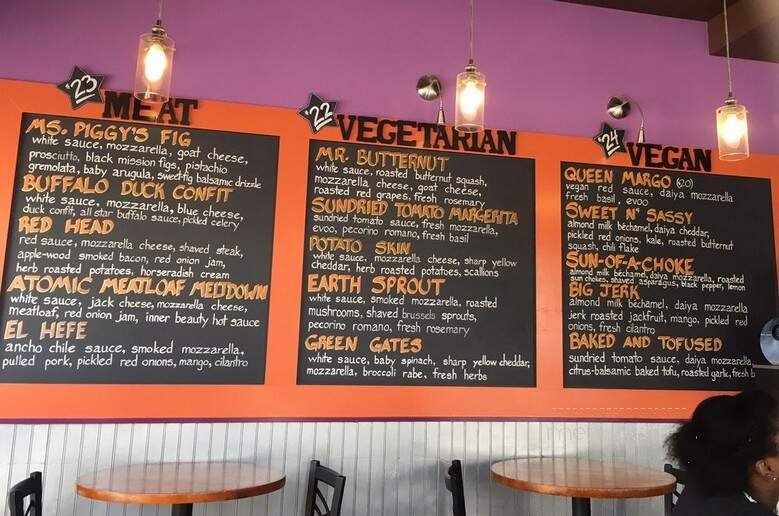 '23
MEAT
MS. PIGGY'S FIG
white sauce, mozzarella, goat cheese,
prosciutto, black mission figs, pistachio
gremolata, baby arugula, sweet-fig balsamic drizzle
BUFFALO DUCK CONFIT
white sauce, mozzarella, blue cheese,
duck confit, all star buffalo sauce, pickled celery
RED HEAD
red sauce, mozzarella cheese, shaved steak,
apple-wood smoked bacon, red onion jam,
herb roasted potatoes, horseradish cream
ATOMIC MEATLOAF MELTDOWN
white sauce, jack cheese, mozzarella cheese,
meatloaf, red onion jam, inner beauty hot sauce
EL HEFE
ancho chile sauce, smoked mozzarella,
pulled pork, pickled red onions, mango, cilantro
'22
VEGETARIAN
MR. BUTTERNUT
white sauce, roasted butternut squash,
mozzarella cheese, goat cheese,
roasted red grapes, fresh rosemary
SUNDRIED TOMATO MARGERITA
sundried tomato sauce, fresh mozzarella,
evoo, pecorino romano, fresh basil
POTATO SKIN
white sauce, mozzarella cheese, sharp yellow
cheddar, herb roasted potatoes, scallions
EARTH SPROUT
white sauce, smoked mozzarella, roasted
mushrooms, shaved brussels sprouts,
pecorino romano, fresh rosemary
GREEN GATES
white sauce, baby spinach, sharp yellow cheddar,
mozzarella, broccoli rabe, fresh herbs
'24
VEGAN
QUEEN MARGO (20)
vegan red sauce, daiya mozzarella
fresh basil, evoo
SWEET N' SASSY
almond milk béchamel, daiya cheddar,
pickled red onions, kale, roasted butternut
squash, chili flake
SUN-OF-A-CHOKE
almond milk béchamel, daiya mozzarella, roasted
sun chokes, shaved asparagus, black pepper, lemon
BIG JERK
almond milk béchamel, daiya mozzarella
jerk roasted jackfruit, mango, pickled red
onions, fresh cilantro
BAKED AND TOFUSED
sundried tomato sauce, daiya mozzarella,
citrus-balsamic baked tofu, roasted garlic, fresh b